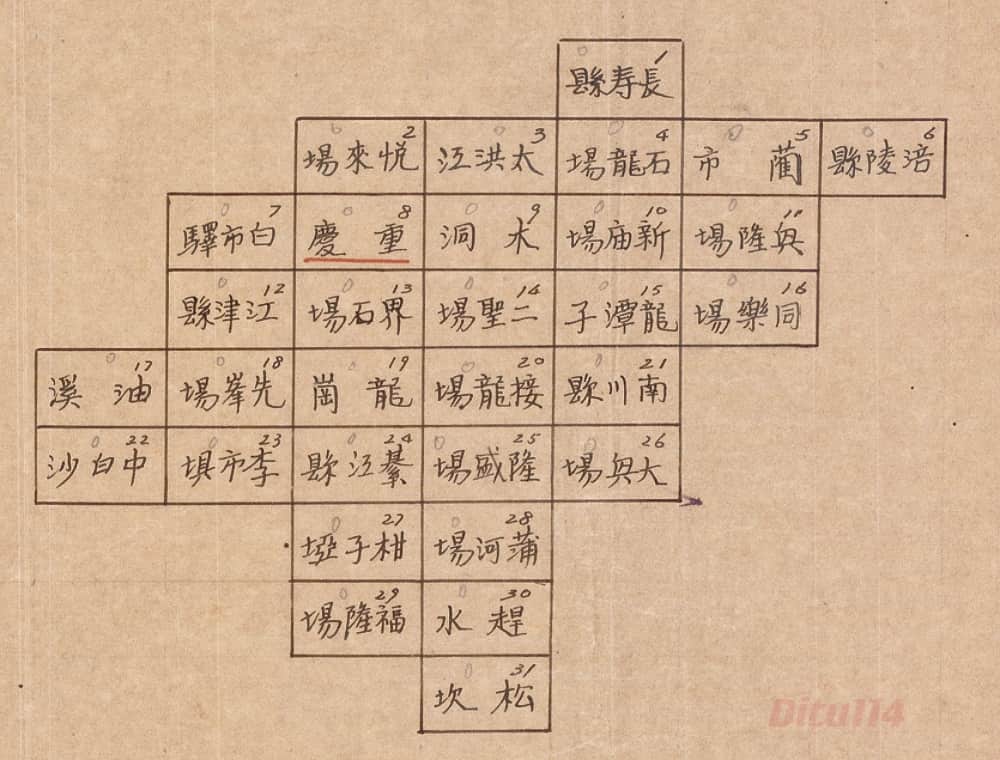 1 長寿縣
2 悅來場
3 太洪江
4 石龍場
5 藺市
6 涪陵縣
7 白市驛
8 重慶
9 木洞
10 新庙場
11 興隆場
12 江津縣
13 界石場
14 二聖場
15 龍潭子
16 同樂場
17 油溪
18 先峯場
19 龍崗
20 接龍場
21 南川縣
22 中白沙
23 李市埧
24 綦江縣
25 隆盛場
26 大興場
27 柑子埡
28 蒲河場
29 福隆場
30 趕水
31 松坎
Ditu114